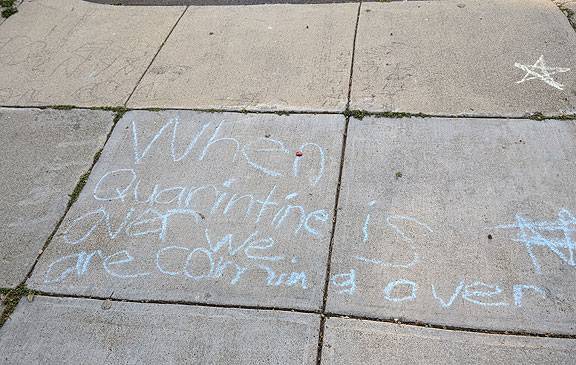 When
Quarintine is
over we
are coming over